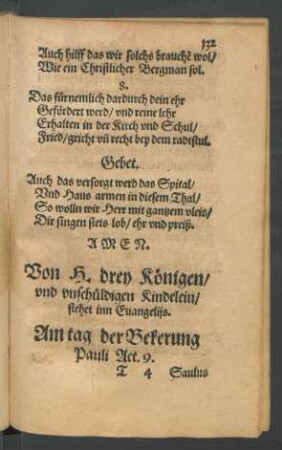 132
Auch hilff das wir solchs brauchē wol/
Wie ein Christlicher Bergman sol.
8.
Das fürnemlich dardurch dein ehr
Gefördert werd/ vnd reine lehr
Erhalten in der Kirch vnd Schul/
Fried/gricht vñ recht bey dem radtstul.
Gebet.
Auch das versorgt werd das Spital/
Vnd Haus armen in diesem Thal/
So wolln wir Herr mit gantzem vleis/
Dir singen stets lob/ ehr vnd preiß.
AMEN.
Von H. drey Königen/
vnd vnschüldigen Kindelein/
stehet inn Euangelijs.
Am tag der Bekerung
Pauli Act. 9.
T 4 Saulus